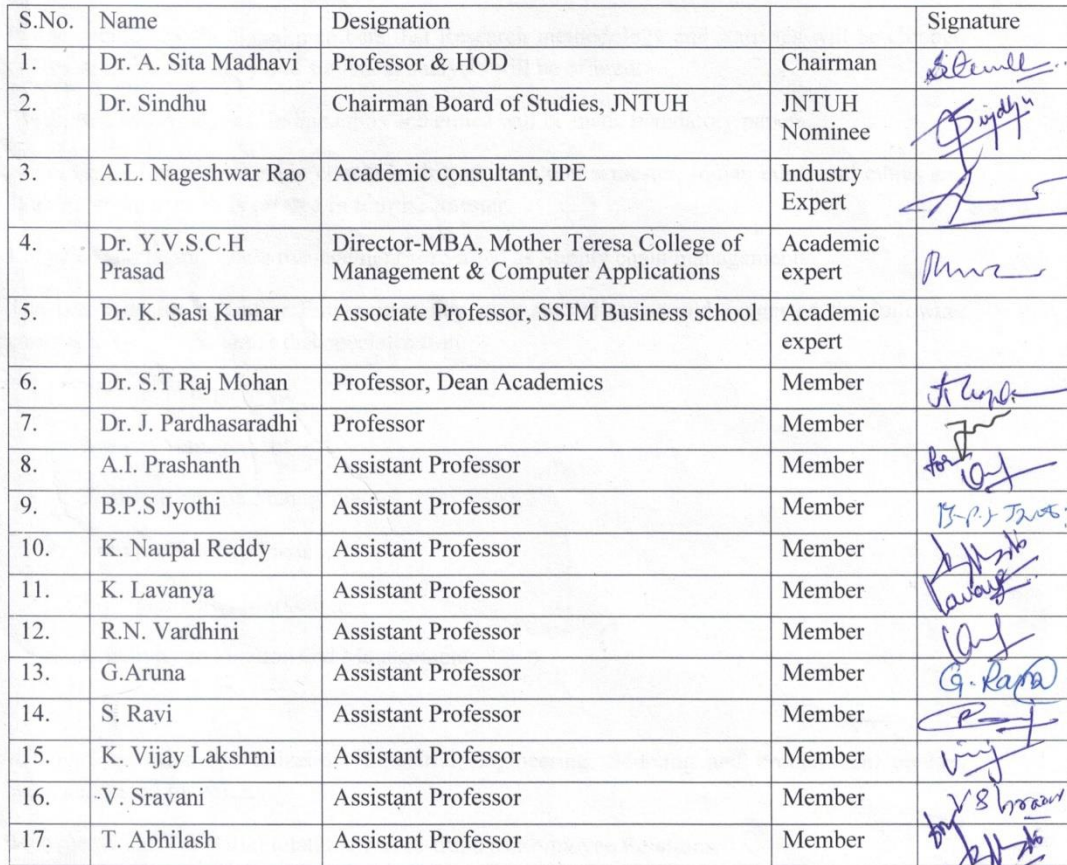 S.No. Name Designation Signature
1. Dr. A. Sita Madhavi Professor & HOD Chairman
2. Dr. Sindhu Chairman Board of Studies, JNTUH JNTUH
Nominee
3. A.L. Nageshwar Rao Academic consultant, IPE Industry
Expert
4. Dr. Y.V.S.C.H Director-MBA, Mother Teresa College of Academic
Prasad Management & Computer Applications expert
5. Dr. K. Sasi Kumar Associate Professor, SSIM Business school Academic
expert
6. Dr. S.T Raj Mohan Professor, Dean Academics Member
7. Dr. J. Pardhasaradhi Professor Member
8. A.I. Prashanth Assistant Professor Member for
9. B.P.S Jyothi Assistant Professor Member
10. K. Naupal Reddy Assistant Professor Member
11. K. Lavanya Assistant Professor Member Lavanya
12. R.N. Vardhini Assistant Professor Member
13. G.Aruna Assistant Professor Member
14. S. Ravi Assistant Professor Member
15. K. Vijay Lakshmi Assistant Professor Member
16. V. Sravani Assistant Professor Member
17. T. Abhilash Assistant Professor Member for